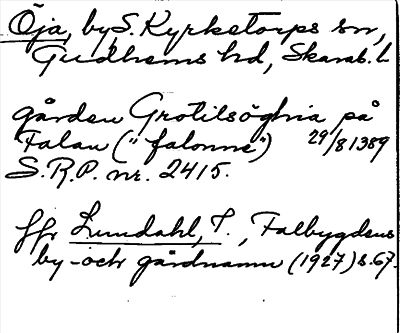 Öja, by, S. Kyrketorps sn,
Gudhems hd, Skarab. l.
gården Grotilsöghia på
Falan ("falonne") 29/8 1389
S.R.P. nr. 2415.
jfr Lundahl, I., Falbygdens
by- och gårdnamn (1927) s. 67.